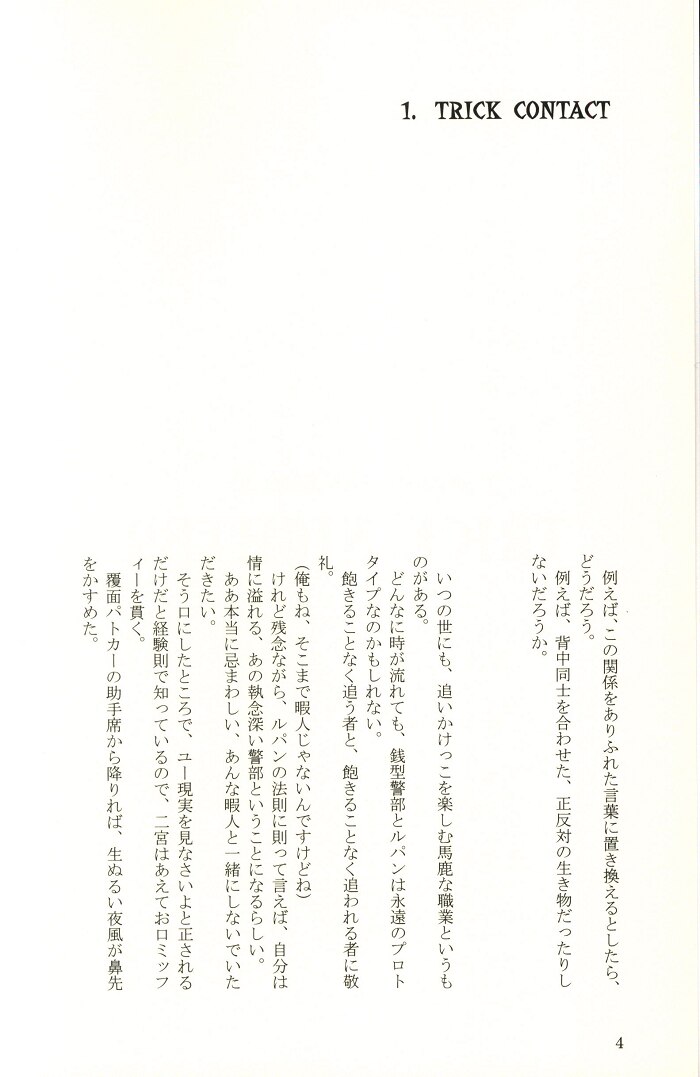 1. TRICK CONTACT
例えば、この関係をありふれた言葉に置き換えるとしたら、
どうだろう。
例えば、背中同士を合わせた、正反対の生き物だったりし
ないだろうか。
いつの世にも、追いかけっこを楽しむ馬鹿な職業というも
のがある。
どんなに時が流れても、銭型警部とルパンは永遠のプロト
タイプなのかもしれない。
飽きることなく追う者と、飽きることなく追われる者に敬
礼。
(俺もね、そこまで暇人じゃないんですけどね)
けれど残念ながら、ルパンの法則に則って言えば、自分は
情に溢れる、あの執念深い警部ということになるらしい。
ああ本当に忌まわしい、あんな暇人と一緒にしないでいた
だきたい。
そう口にしたところで、ユー現実を見なさいよと正される
だけだと経験則で知っているので、二宮はあえてお口ミッフ
ィーを貫く。
覆面パトカーの助手席から降りれば、生ぬるい夜風が鼻先
をかすめた。
4